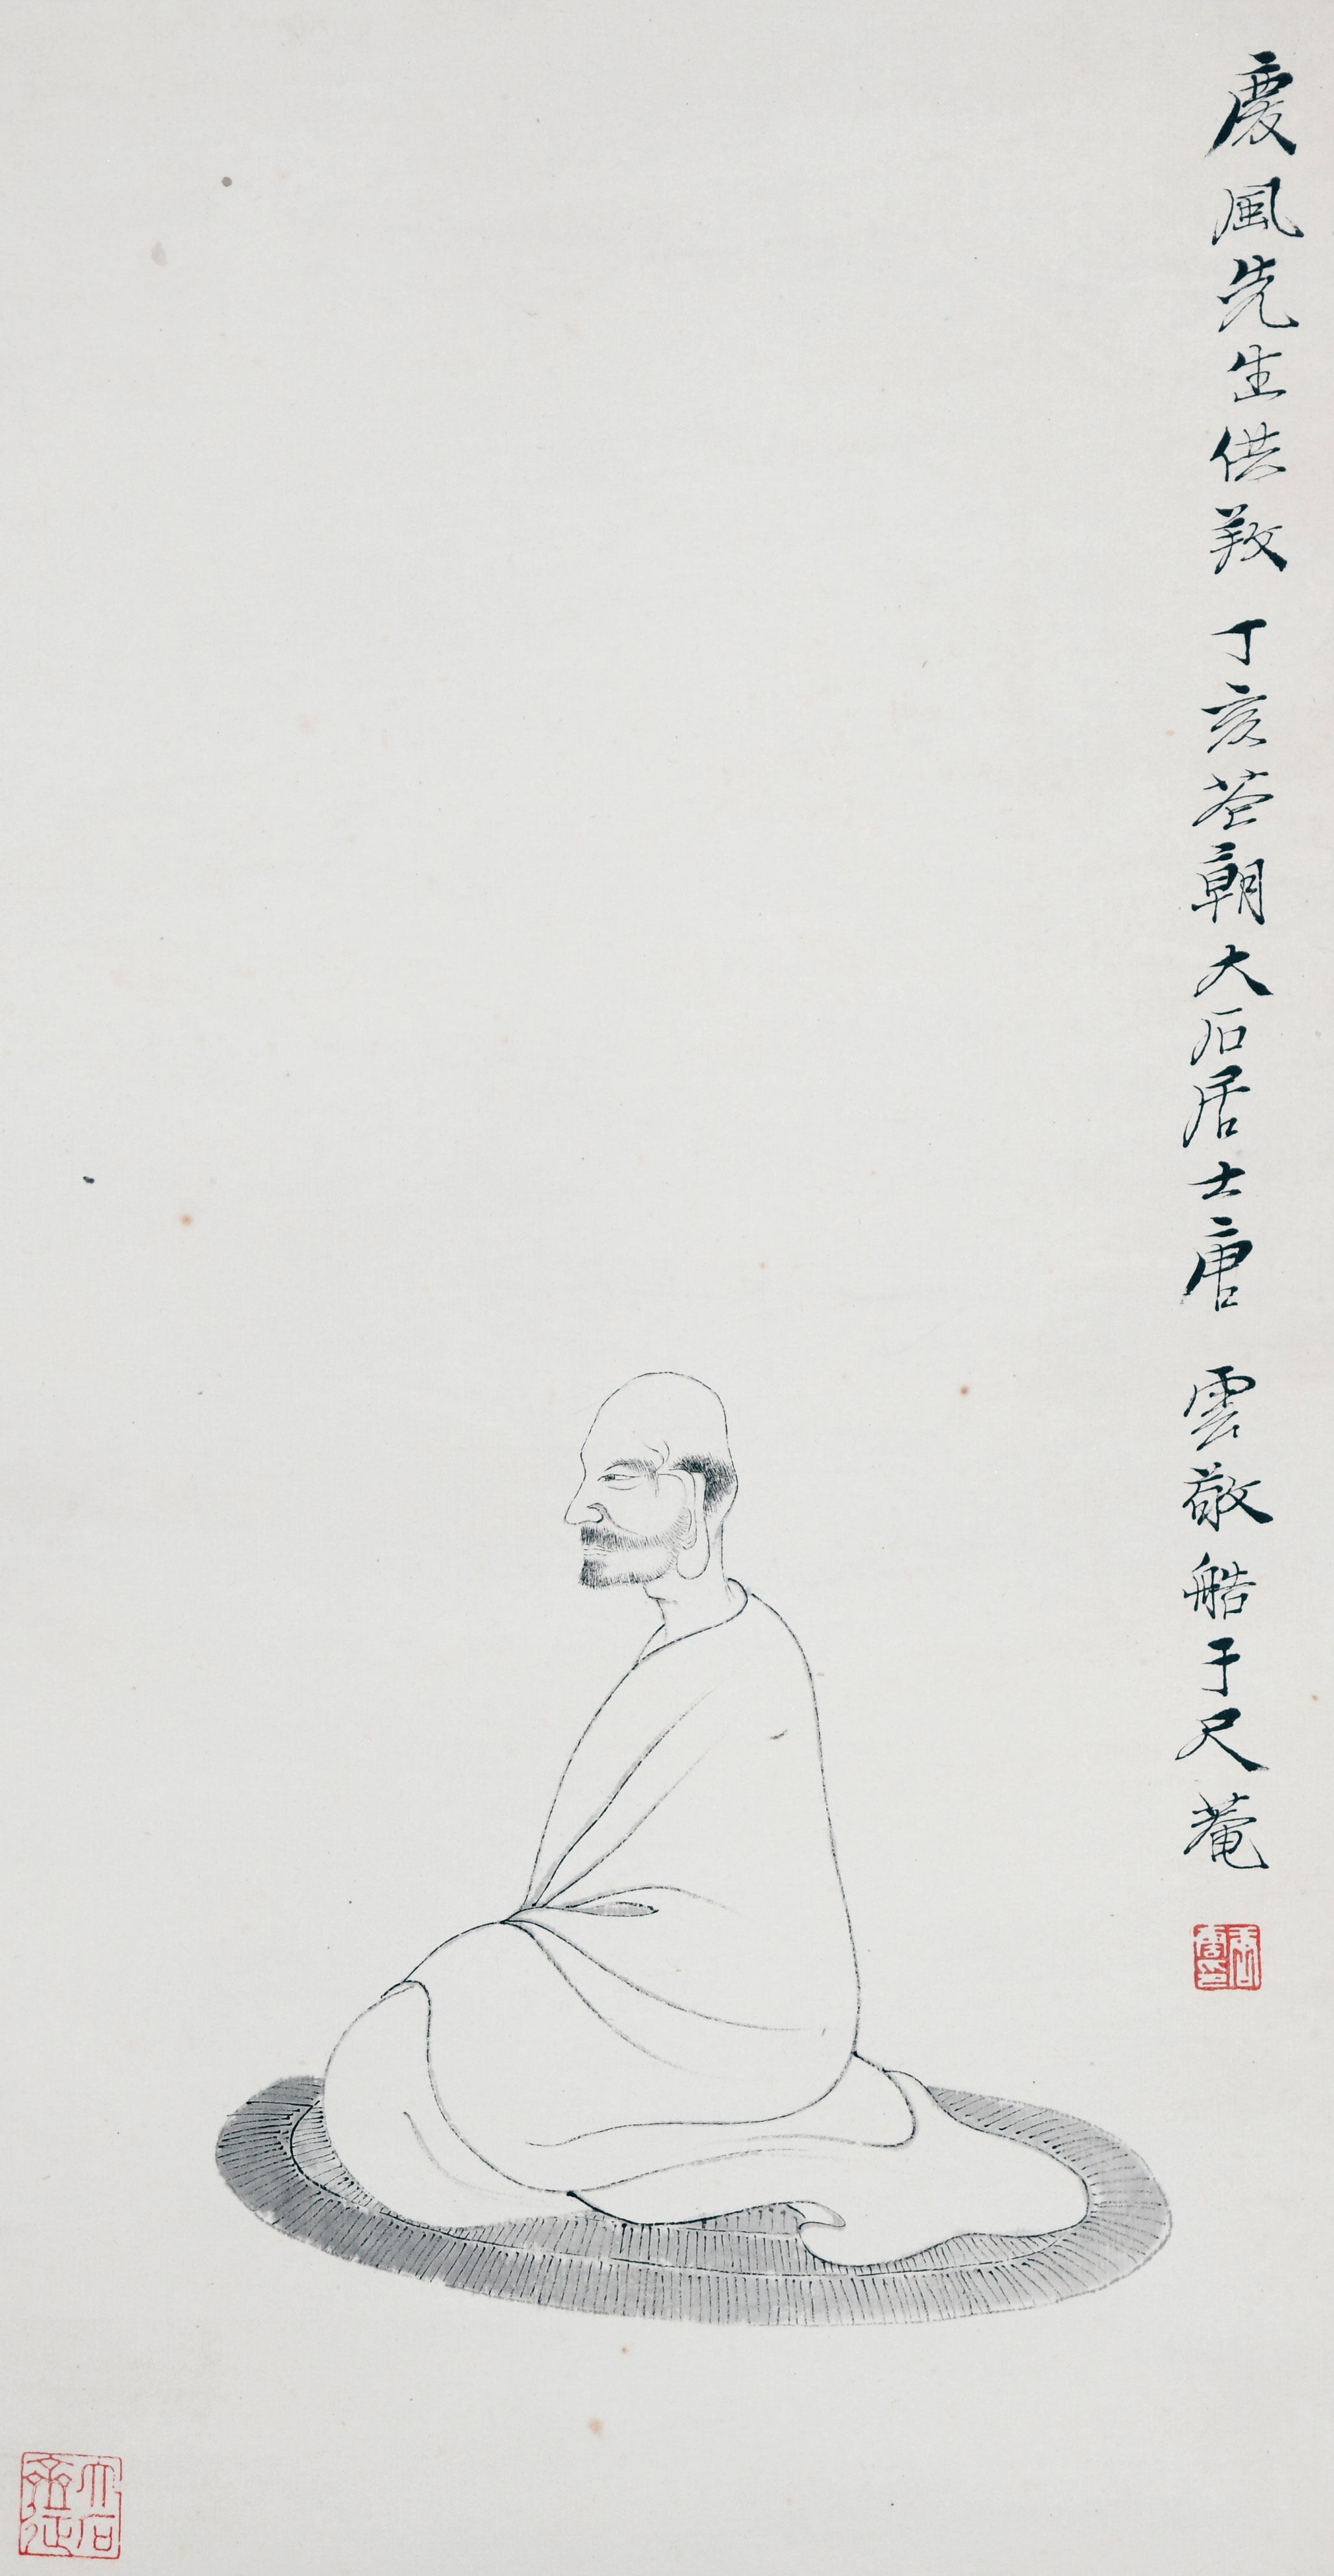 慶風先生供養 丁亥花朝大石居士唐雲敬艁于尺菴